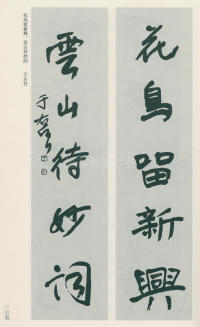 花鳥留新興
雲山待妙詞
于右任
花鳥留新興，雲山待妙詞。 于右任
一三五